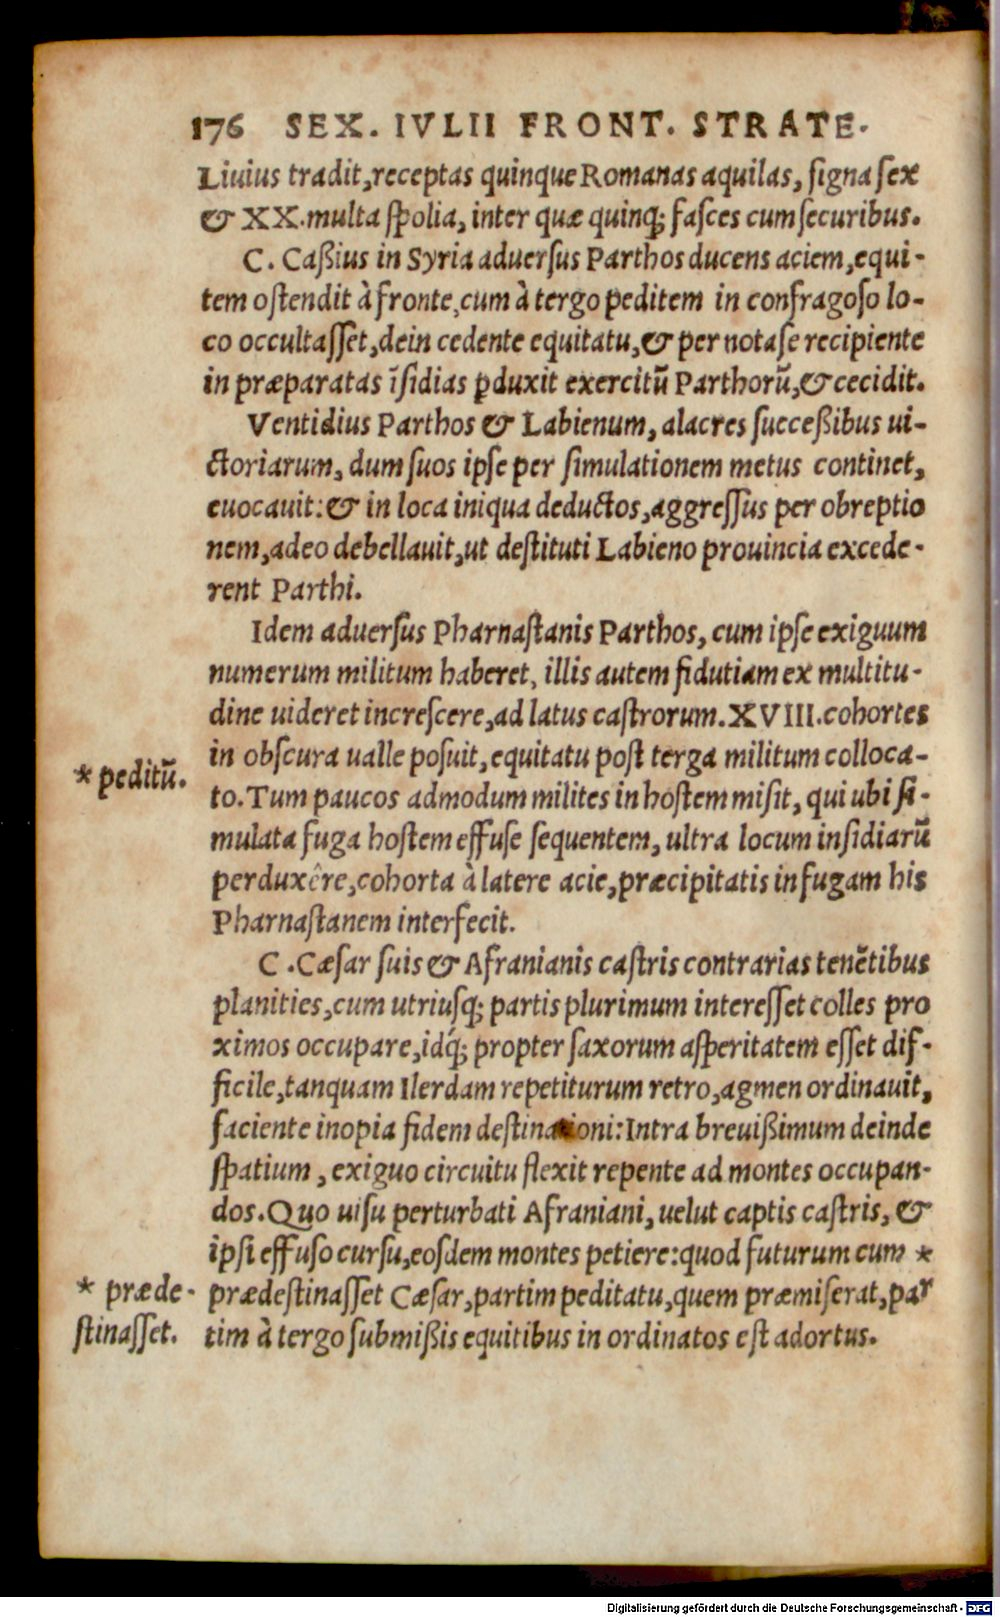 176 SEX. IVLII FRONT. STRATE.
Liuius tradit, receptas quinque Romanas aquilas, ſigna ſex
& XX. multa ſpolia, inter quæ quinq; faſces cum ſecuribus.
C. Caßius in Syria aduerſus Parthos ducens aciem, equi-
tem oſtendit à fronte, cum à tergo peditem in confragoſo lo-
co occultaſſet, dein cedente equitatu, & per nota ſe recipiente
in præparatas īſidias ꝑduxit exercitū Parthorū, & cecidit.
Ventidius Parthos & Labienum, alacres ſucceßibus ui-
ctoriarum, dum ſuos ipſe per ſimulationem metus continet,
euocauit: & in loca iniqua deductos, aggreſſus per obreptio
nem, adeo debellauit, ut deſtituti Labieno prouincia excede-
rent Parthi.
Idem aduerſus Pharnaſtanis Parthos, cum ipſe exiguum
numerum militum haberet, illis autem fidutiam ex multitu-
dine uideret increſcere, ad latus caſtrorum. XVIII. cohortes
in obſcura ualle poſuit, equitatu poſt terga militum colloca-
* peditū.
to. Tum paucos admodum milites in hoſtem miſit, qui ubi ſi-
mulata fuga hoſtem effuſe ſequentem, ultra locum inſidiarū
perduxêre, cohorta à latere acie, præcipitatis in fugam his
Pharnaſtanem interfecit.
C. Cæſar ſuis & Afranianis caſtris contrarias tenētibus
planities, cum utriuſq; partis plurimum intereſſet colles pro
ximos occupare, idq́; propter ſaxorum aſperitatem eſſet dif-
ficile, tanquam Ilerdam repetiturum retro, agmen ordinauit,
faciente inopia fidem deſtinationi: Intra breuißimum deinde
ſpatium, exiguo circuitu flexit repente ad montes occupan-
dos. Quo uiſu perturbati Afraniani, uelut captis caſtris, &
ipſi effuſo curſu, eoſdem montes petiere: quod futurum cum *
* præde-
ſtinaſſet.
prædeſtinaſſet Cæſar, partim peditatu, quem præmiſerat, par
tim à tergo ſubmißis equitibus in ordinatos eſt adortus.
Digitalisierung gefördert durch die Deutsche Forschungsgemeinschaft - DFG